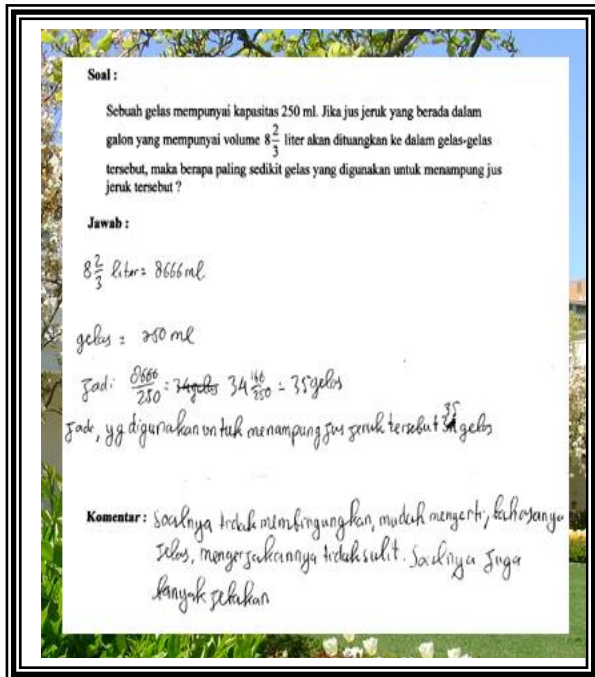 Soal :
Sebuah gelas mempunyai kapasitas 250 ml. Jika jus jeruk yang berada dalam
galon yang mempunyai volume 8 2/3 liter akan dituangkan ke dalam gelas-gelas
tersebut, maka berapa paling sedikit gelas yang digunakan untuk menampung jus
jeruk tersebut ?
Jawab :
8 2/3 liter = 8666 ml
gelas = 250 ml
Jadi 8666/250 = 34 gelas 34 166/250 = 35 gelas
Jadi, yg digunakan untuk menampung jus jeruk tersebut 35 gelas
Komentar : Soalnya tidak membingungkan, mudah mengerti, bahasanya
jelas, mengerjakannya tidak sulit. Soalnya juga
banyak